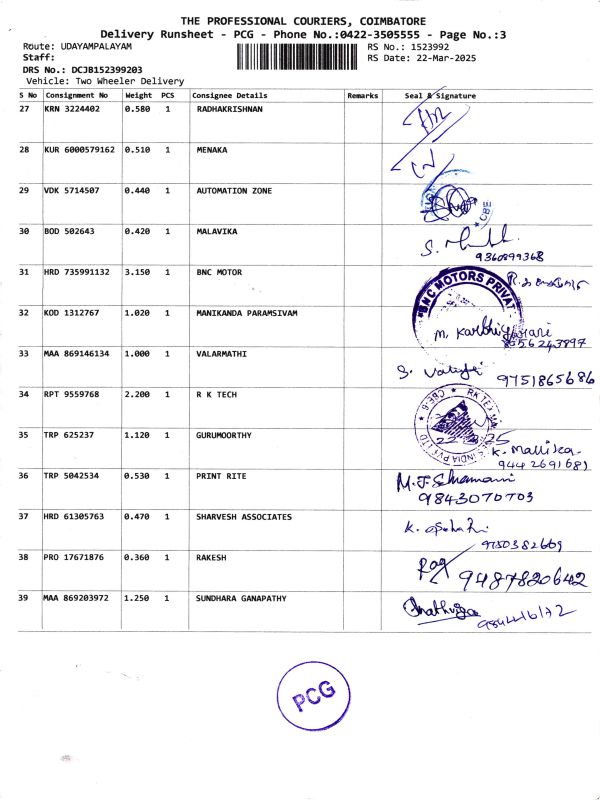 THE PROFESSIONAL COURIERS, COIMBATORE
Delivery Runsheet - PCG - Phone No.:0422-3505555 - Page No.:3
Route: UDAYAMPALAYAM RS No.: 1523992
Staff: RS Date: 22-Mar-2025
DRS No.: DCJB152399203
Vehicle: Two Wheeler Delivery
S No Consignment No Weight PCS Consignee Details Remarks Seal & Signature
27 KRN 3224402 0.580 1 RADHAKRISHNAN
28 KUR 6000579162 0.510 1 MENAKA
29 VDK 5714507 0.440 1 AUTOMATION ZONE
CBE
30 BOD 502643 0.420 1 MALAVIKA
9360899368
31 HRD 735991132 3.150 1 BNC MOTOR
BNC MOTORS PRIVAT
32 KOD 1312767 1.020 1 MANIKANDA PARAMSIVAM
M.
33 MAA 869146134 1.000 1 VALARMATHI
S. 9751865686
34 RPT 9559768 2.200 1 R K TECH
35 TRP 625237 1.120 1 GURUMOORTHY
INDIA PVT LTD
K. Mallika
9442691681
36 TRP 5042534 0.530 1 PRINT RITE
9843070703
37 HRD 61305763 0.470 1 SHARVESH ASSOCIATES
K.
9750382609
38 PRO 17671876 0.360 1 RAKESH
9487820642
39 MAA 869203972 1.250 1 SUNDHARA GANAPATHY
PCG